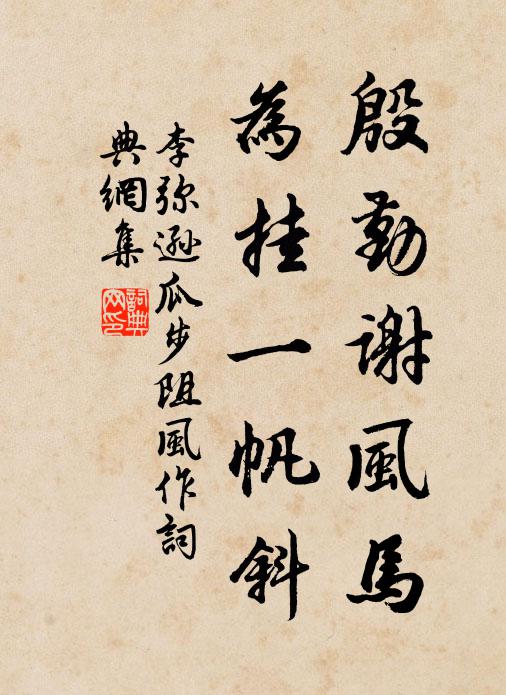 殷勤謝風馬
為挂一帆斜
李弥遜瓜步阻風作詞
典網集
詞典网印